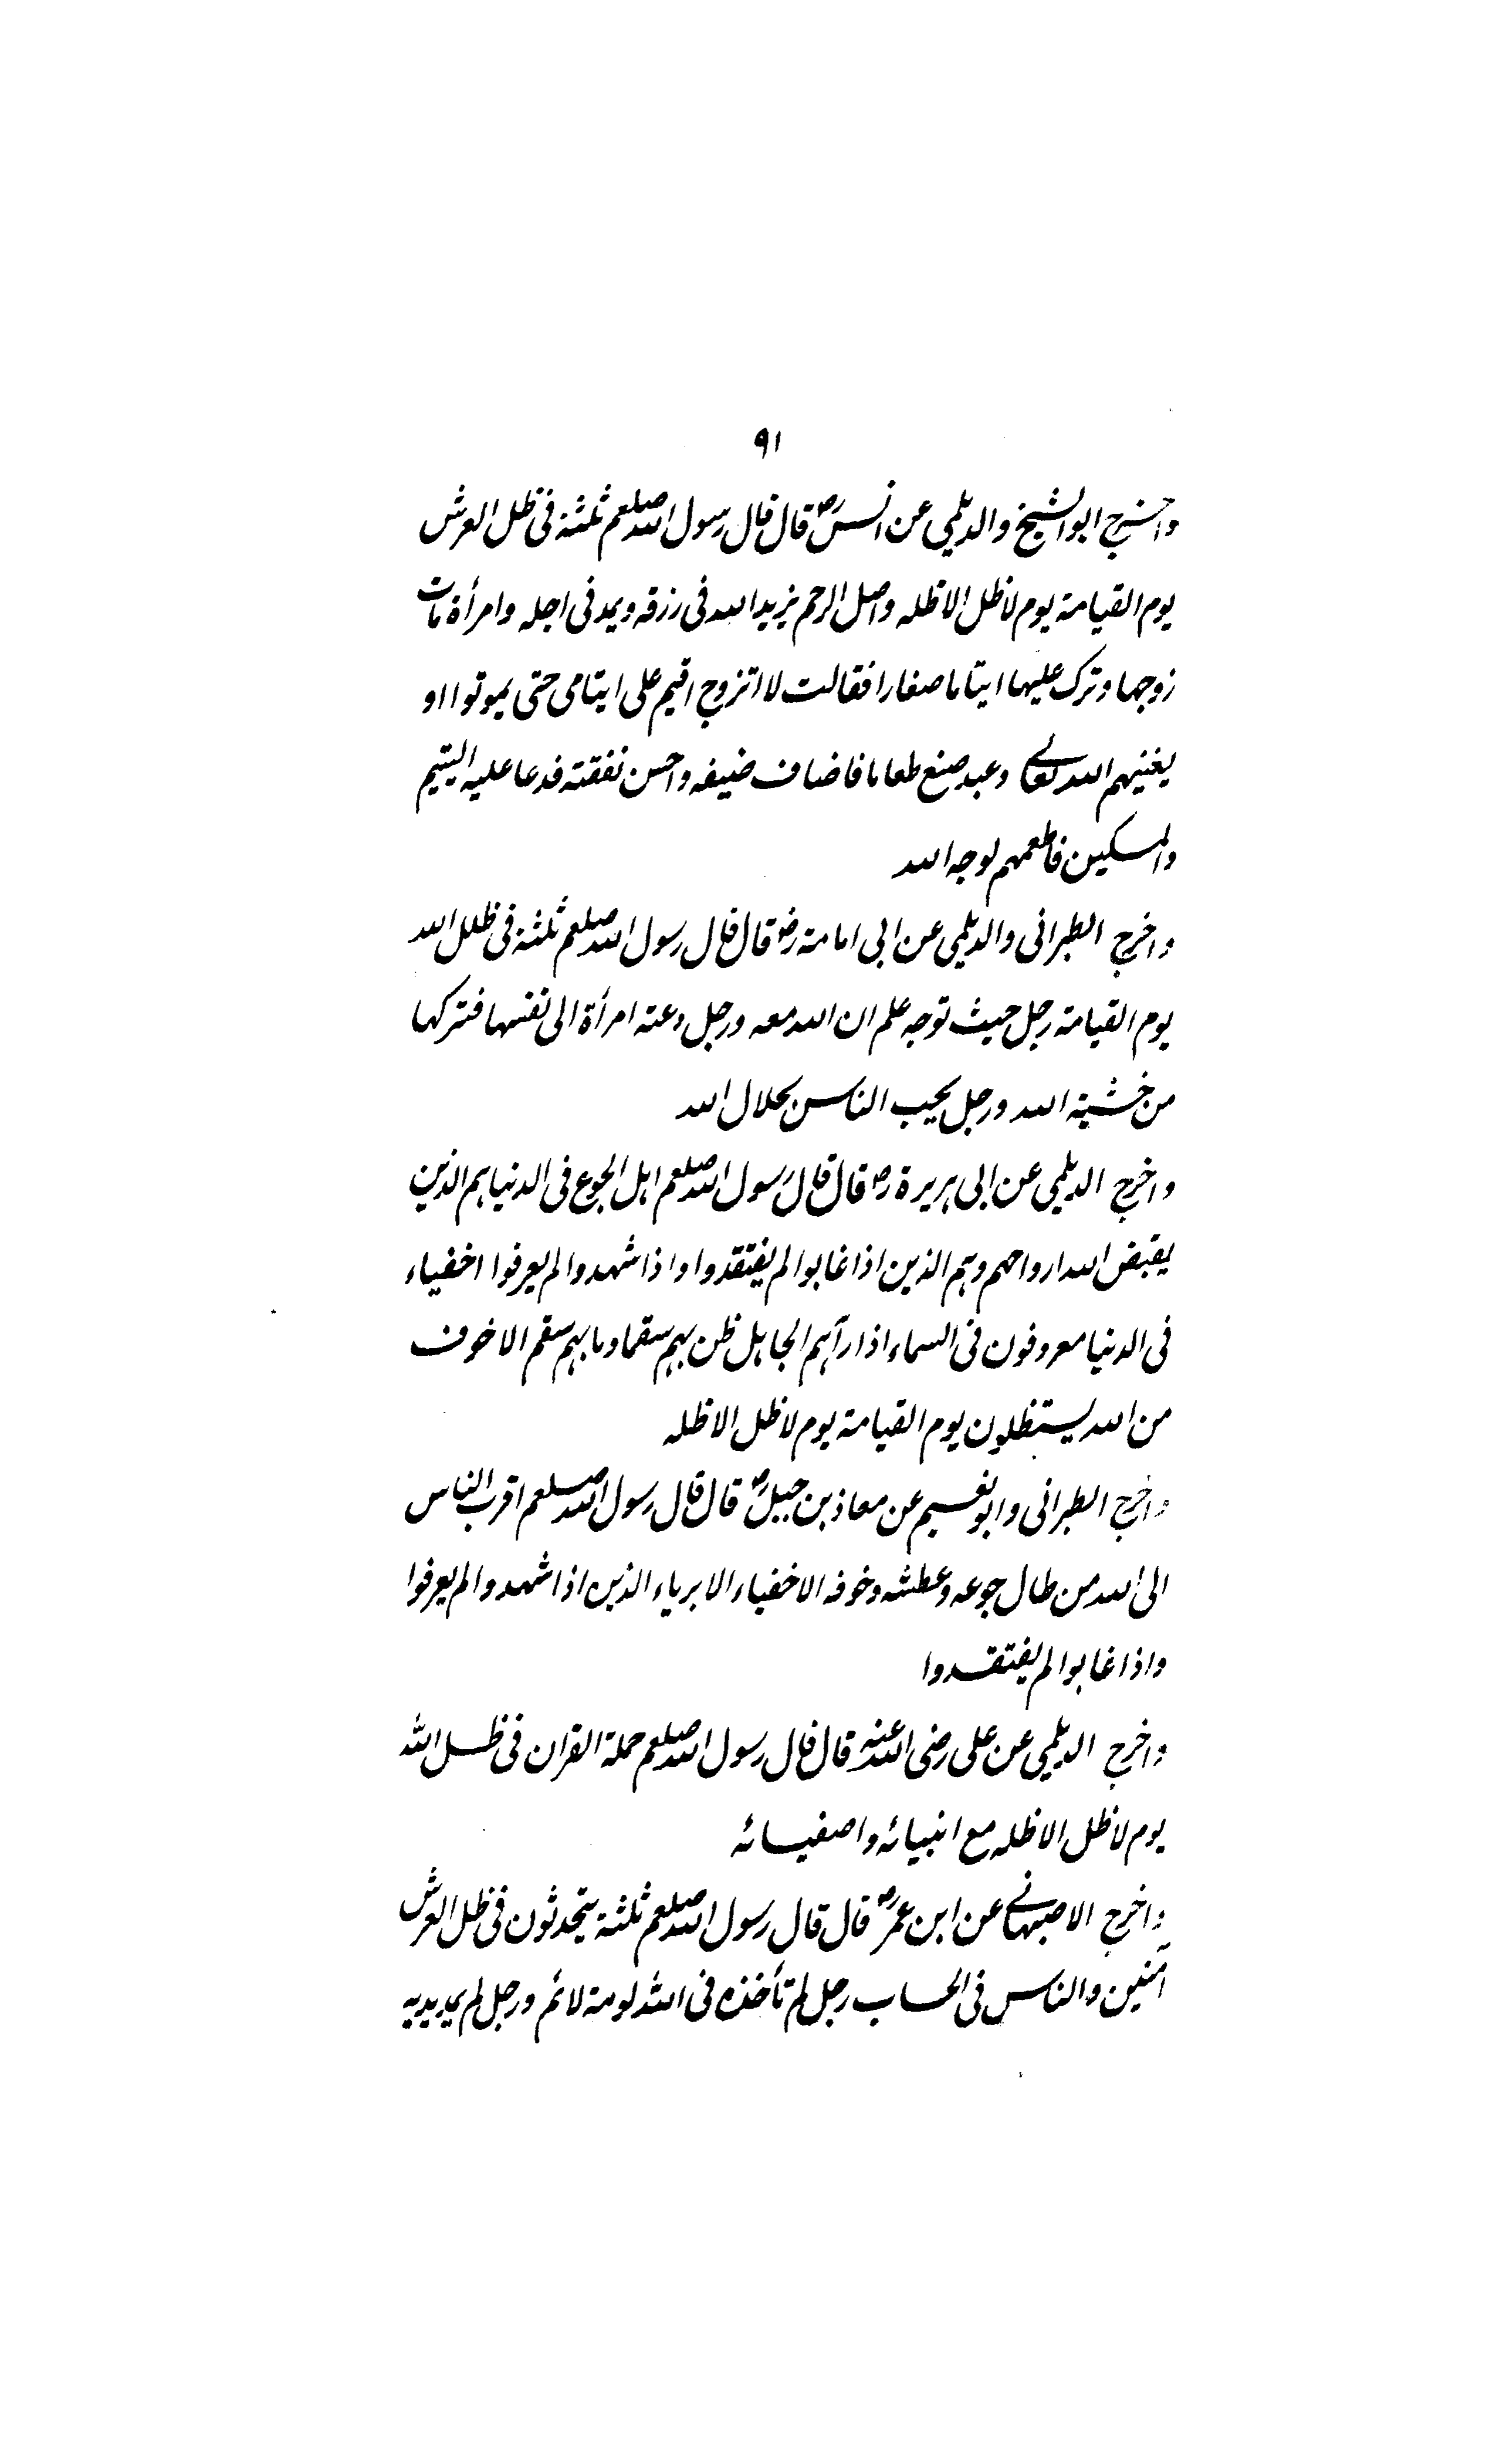 ٩١
واخرج ابوالشیخ والدیلمی عن انس رض قال قال رسول الله صلعم ثلثة فی ظل العرش
یوم القیامة یوم لا ظل الا ظله واصل الرحم یزید الله فی رزقه ویمد فی اجله وامرأة مات
زوجها وترک علیها ایتاما صغارا فقالت لا اتزوج اقیم علی ایتامی حتی یموتوا او
یغنیهم الله تعالی وعبد صنع طعاما فاضاف ضیفه واحسن نفقته فدعا علیه الیتیم
والمسکین فاطعمهم لوجه الله
واخرج الطبرانی والدیلمی عن ابی امامة رضؓ قال قال رسول الله صلعم ثلثة فی ظلل الله
یوم القیامة رجل حیث توجه علم ان الله معه ورجل دعته امرأة الی نفسها فترکها
من خشیة الله ورجل یحب الناس بحلال الله
واخرج الدیلمی عن ابی ہریرة رض قال قال رسول الله صلعم اہل الجوع فی الدنیا ہم الذین
یقبض الله ارواحہم وہم الذین اذا غابوا لم یفتقدوا واذا شهدوا لم یعرفوا اخفیاء
فی الدنیا معروفون فی السماء اذا رآہم الجاہل ظن بہم سقما وما بہم سقم الا خوف
من الله یستظلون یوم القیامة یوم لا ظل الا ظله
واخرج الطبرانی وابو نعیم عن معاذ بن جبل رض قال قال رسول الله صلعم اقرب الناس
الی الله من طال جوعه وعطشه وخوفه الاخفیاء الابریاء الذین اذا شهدوا لم یعرفوا
واذا غابوا لم یفتقدوا
واخرج الدیلمی عن علی رضی الله عنه قال قال رسول الله صلعم حملة القران فی ظل الله
یوم لا ظل الا ظله مع انبیائه واصفیائه
واخرج الاصبهانی عن ابن عمر رض قال قال رسول الله صلعم ثلثة یتحدثون فی ظل العرش
آمنین والناس فی الحساب رجل لم تأخذه فی الله لومة لائم ورجل لم یمد یدیه